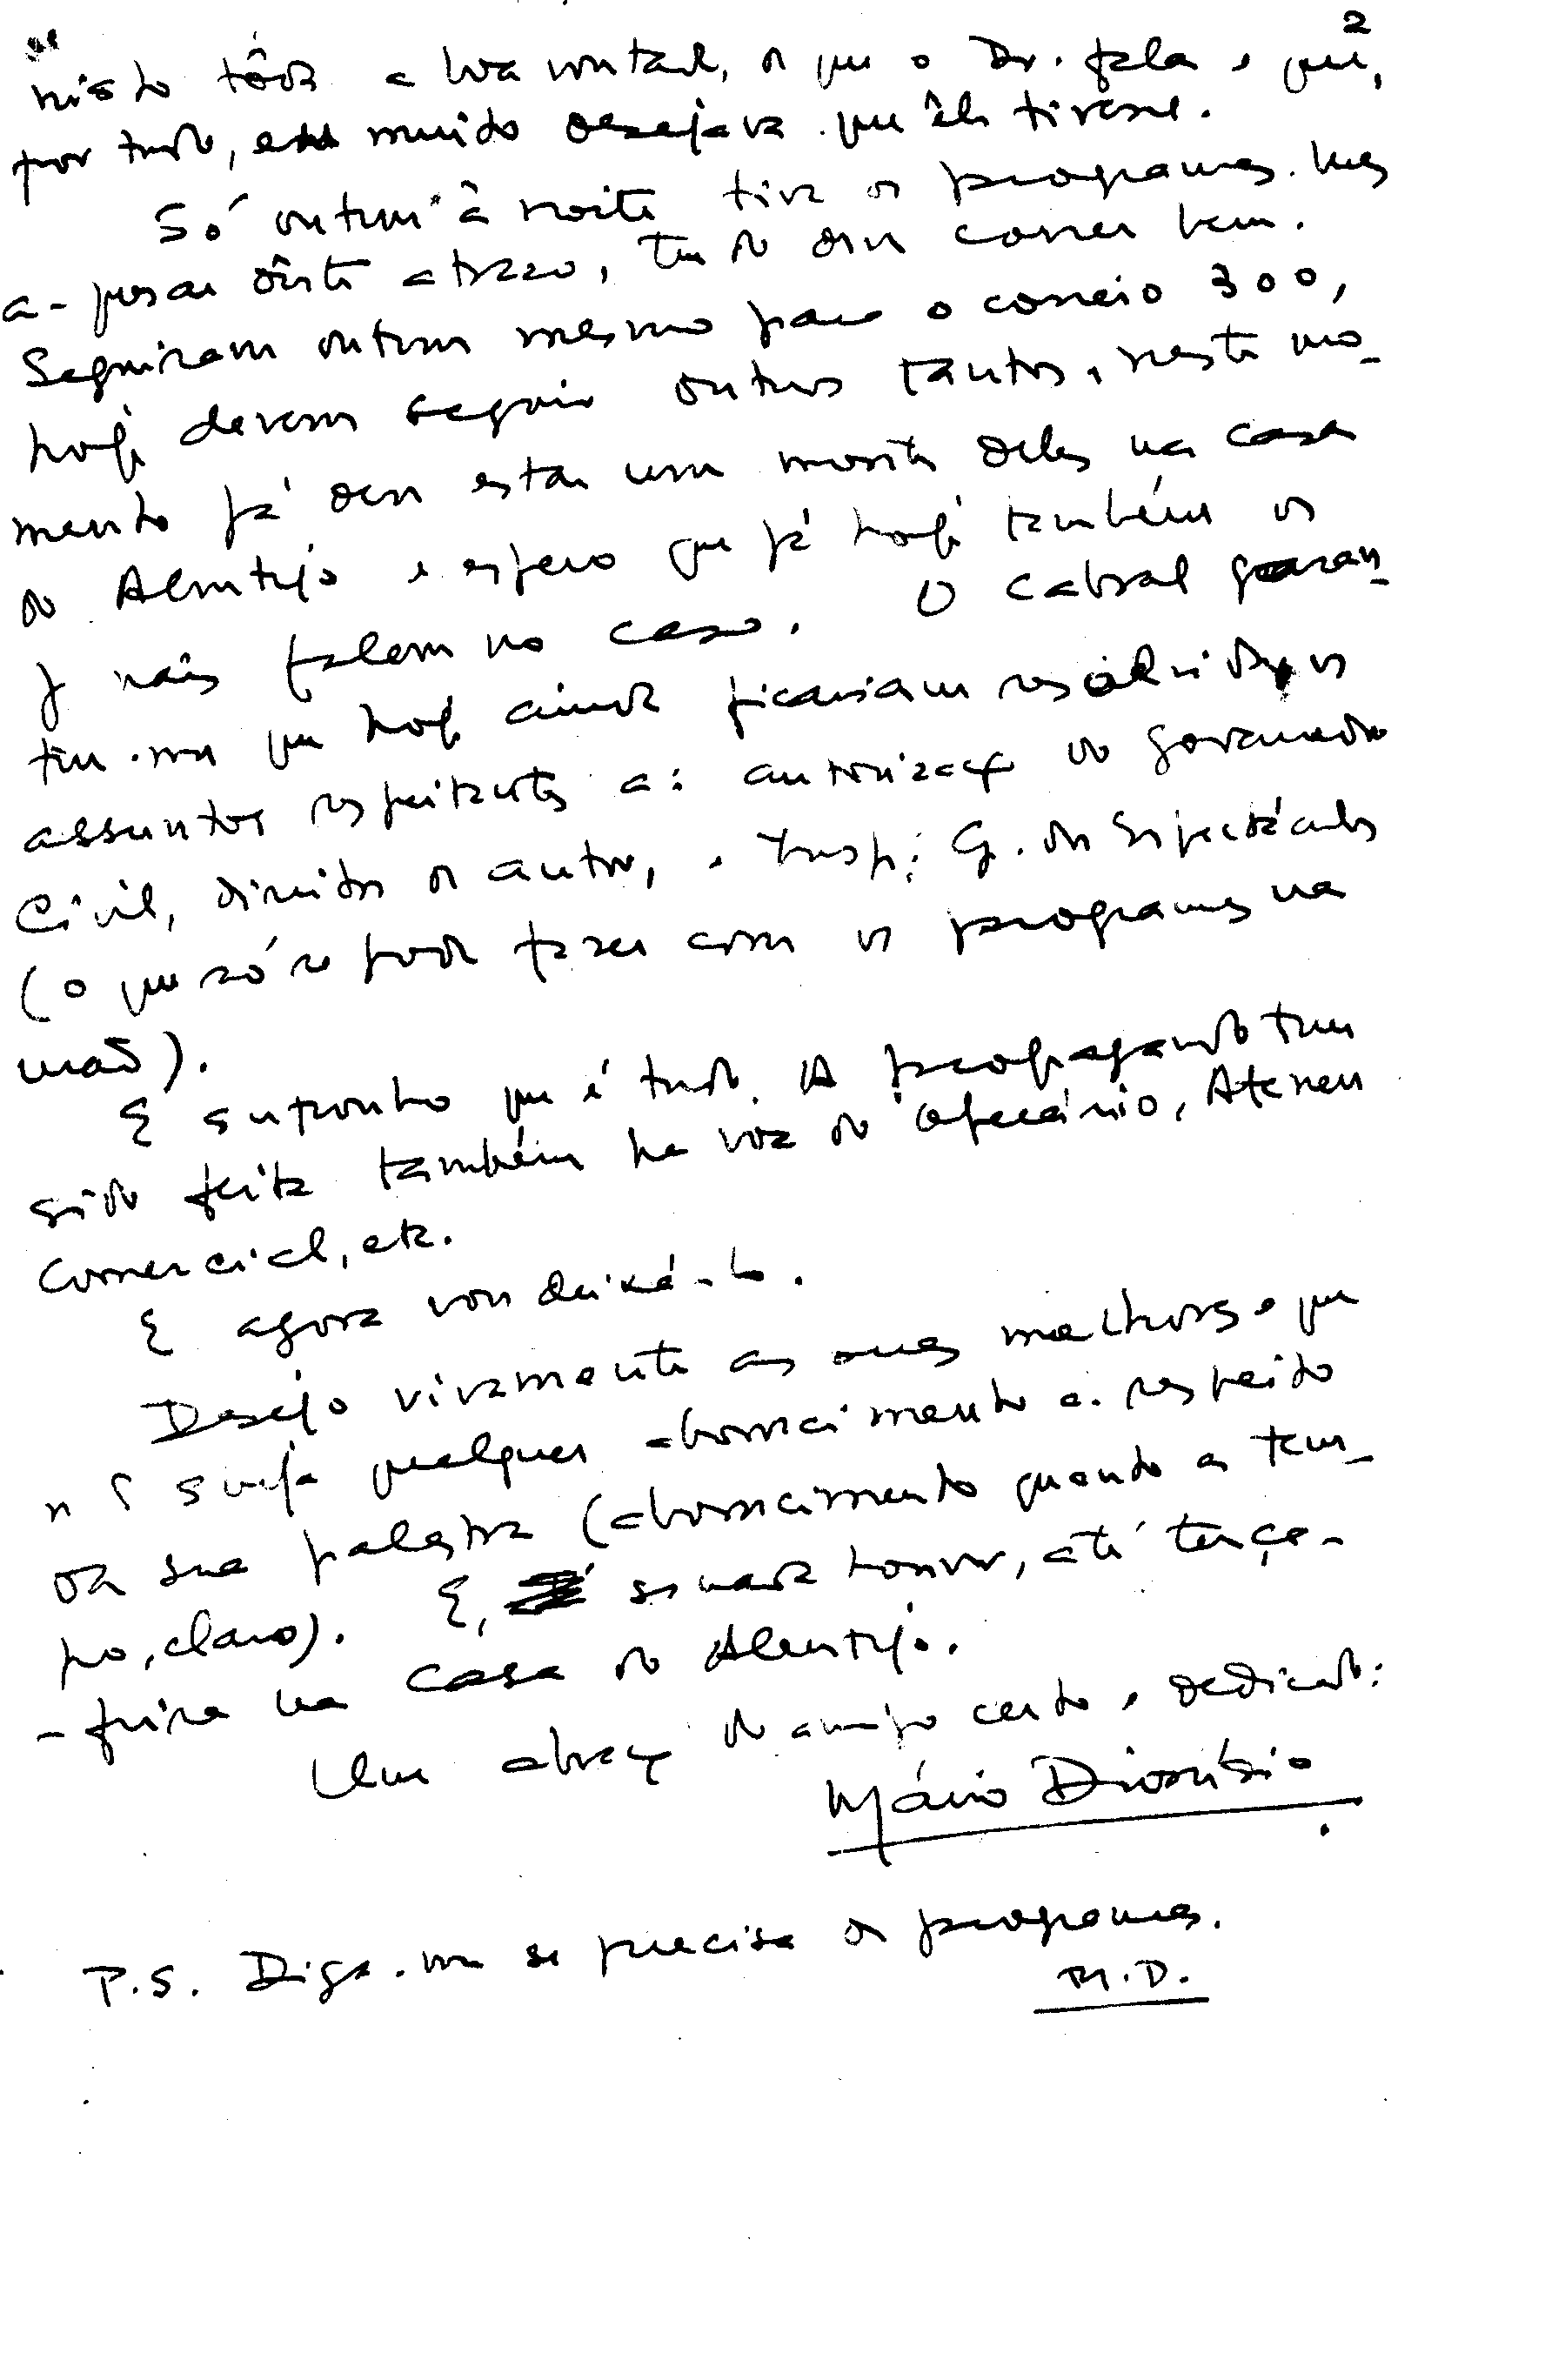 2
nisto tôda a boa vontade, de que o Dr. fala e que,
por tudo, eu muito desejava que êle tivesse.
Só ontem à noite tive os programas. Mas
a-pesar dêste atrazo, tudo deve correr bem.
Seguiram ontem mesmo para o correio 300,
hoje devem seguir outros tantos, neste mo-
mento já deve estar um monte deles na Casa
do Alentejo e espero que já hoje também os
jornais falem no caso. O Cabral garan-
tiu-me que hoje ainda ficariam resolvidos os
assuntos respeitantes a: autorização do Governador
Civil, direitos de autor, e Insp. G. dos Espectáculos
(o que só se pode fazer com os programas na
mão).
E suponho que é tudo. A propaganda tem
sido feita também na voz do Operário, Ateneu
Comercial, etc.
E agora vou deixá-lo.
Desejo vivamente as suas melhoras e que
n surja qualquer aborrecimento a respeito
da sua palestra (aborrecimento quando a tem-
po, claro). E, se nada houver, até terça-
-feira na Casa do Alentejo.
Um abraço do amigo certo e dedicado:
Mário Dionísio
P.S. Diga-me se precisa de programas.
M.D.